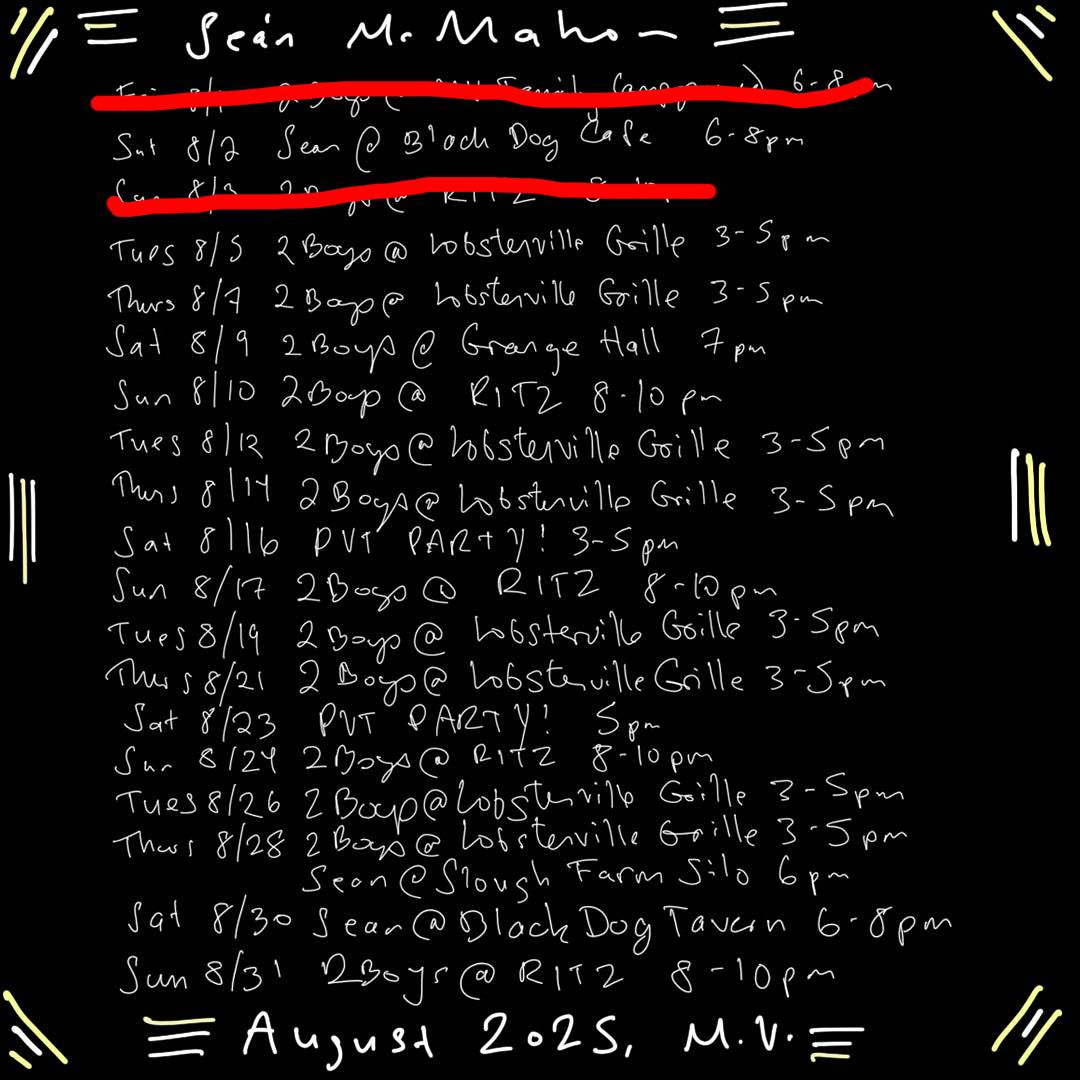 Seán McMahon
Fri 8/1 2 Boys @ MV Family Campground 6-8pm
Sat 8/2 Sean @ Black Dog Cafe 6-8pm
Sun 8/3 2 Boys @ RITZ
Tues 8/5 2 Boys @ Lobsterville Grille 3-5pm
Thurs 8/7 2 Boys @ Lobsterville Grille 3-5pm
Sat 8/9 2 Boys @ Grange Hall 7pm
Sun 8/10 2 Boys @ RITZ 8-10pm
Tues 8/12 2 Boys @ Lobsterville Grille 3-5pm
Thurs 8/14 2 Boys @ Lobsterville Grille 3-5pm
Sat 8/16 PVT PARTY! 3-5pm
Sun 8/17 2 Boys @ RITZ 8-10pm
Tues 8/19 2 Boys @ Lobsterville Grille 3-5pm
Thurs 8/21 2 Boys @ Lobsterville Grille 3-5pm
Sat 8/23 PVT PARTY! 5pm
Sun 8/24 2 Boys @ RITZ 8-10pm
Tues 8/26 2 Boys @ Lobsterville Grille 3-5pm
Thurs 8/28 2 Boys @ Lobsterville Grille 3-5pm
Sean @ Slough Farm Silo 6pm
Sat 8/30 Sean @ Black Dog Tavern 6-8pm
Sun 8/31 2 Boys @ RITZ 8-10pm
August 2025, M.V.